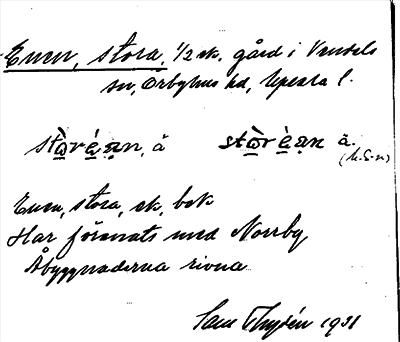 Enen, stora, 1/2 sk. gård i Vendels
sn, Örbyhus hd, Upsala l.
stɷ̀réạn, ä stɷ̀rèạn ä.
(M.S-n)
Enen, stora, sk, bok
Har förenats med Norrby
Åbyggnaderna rivna
Sam Thysén 1931